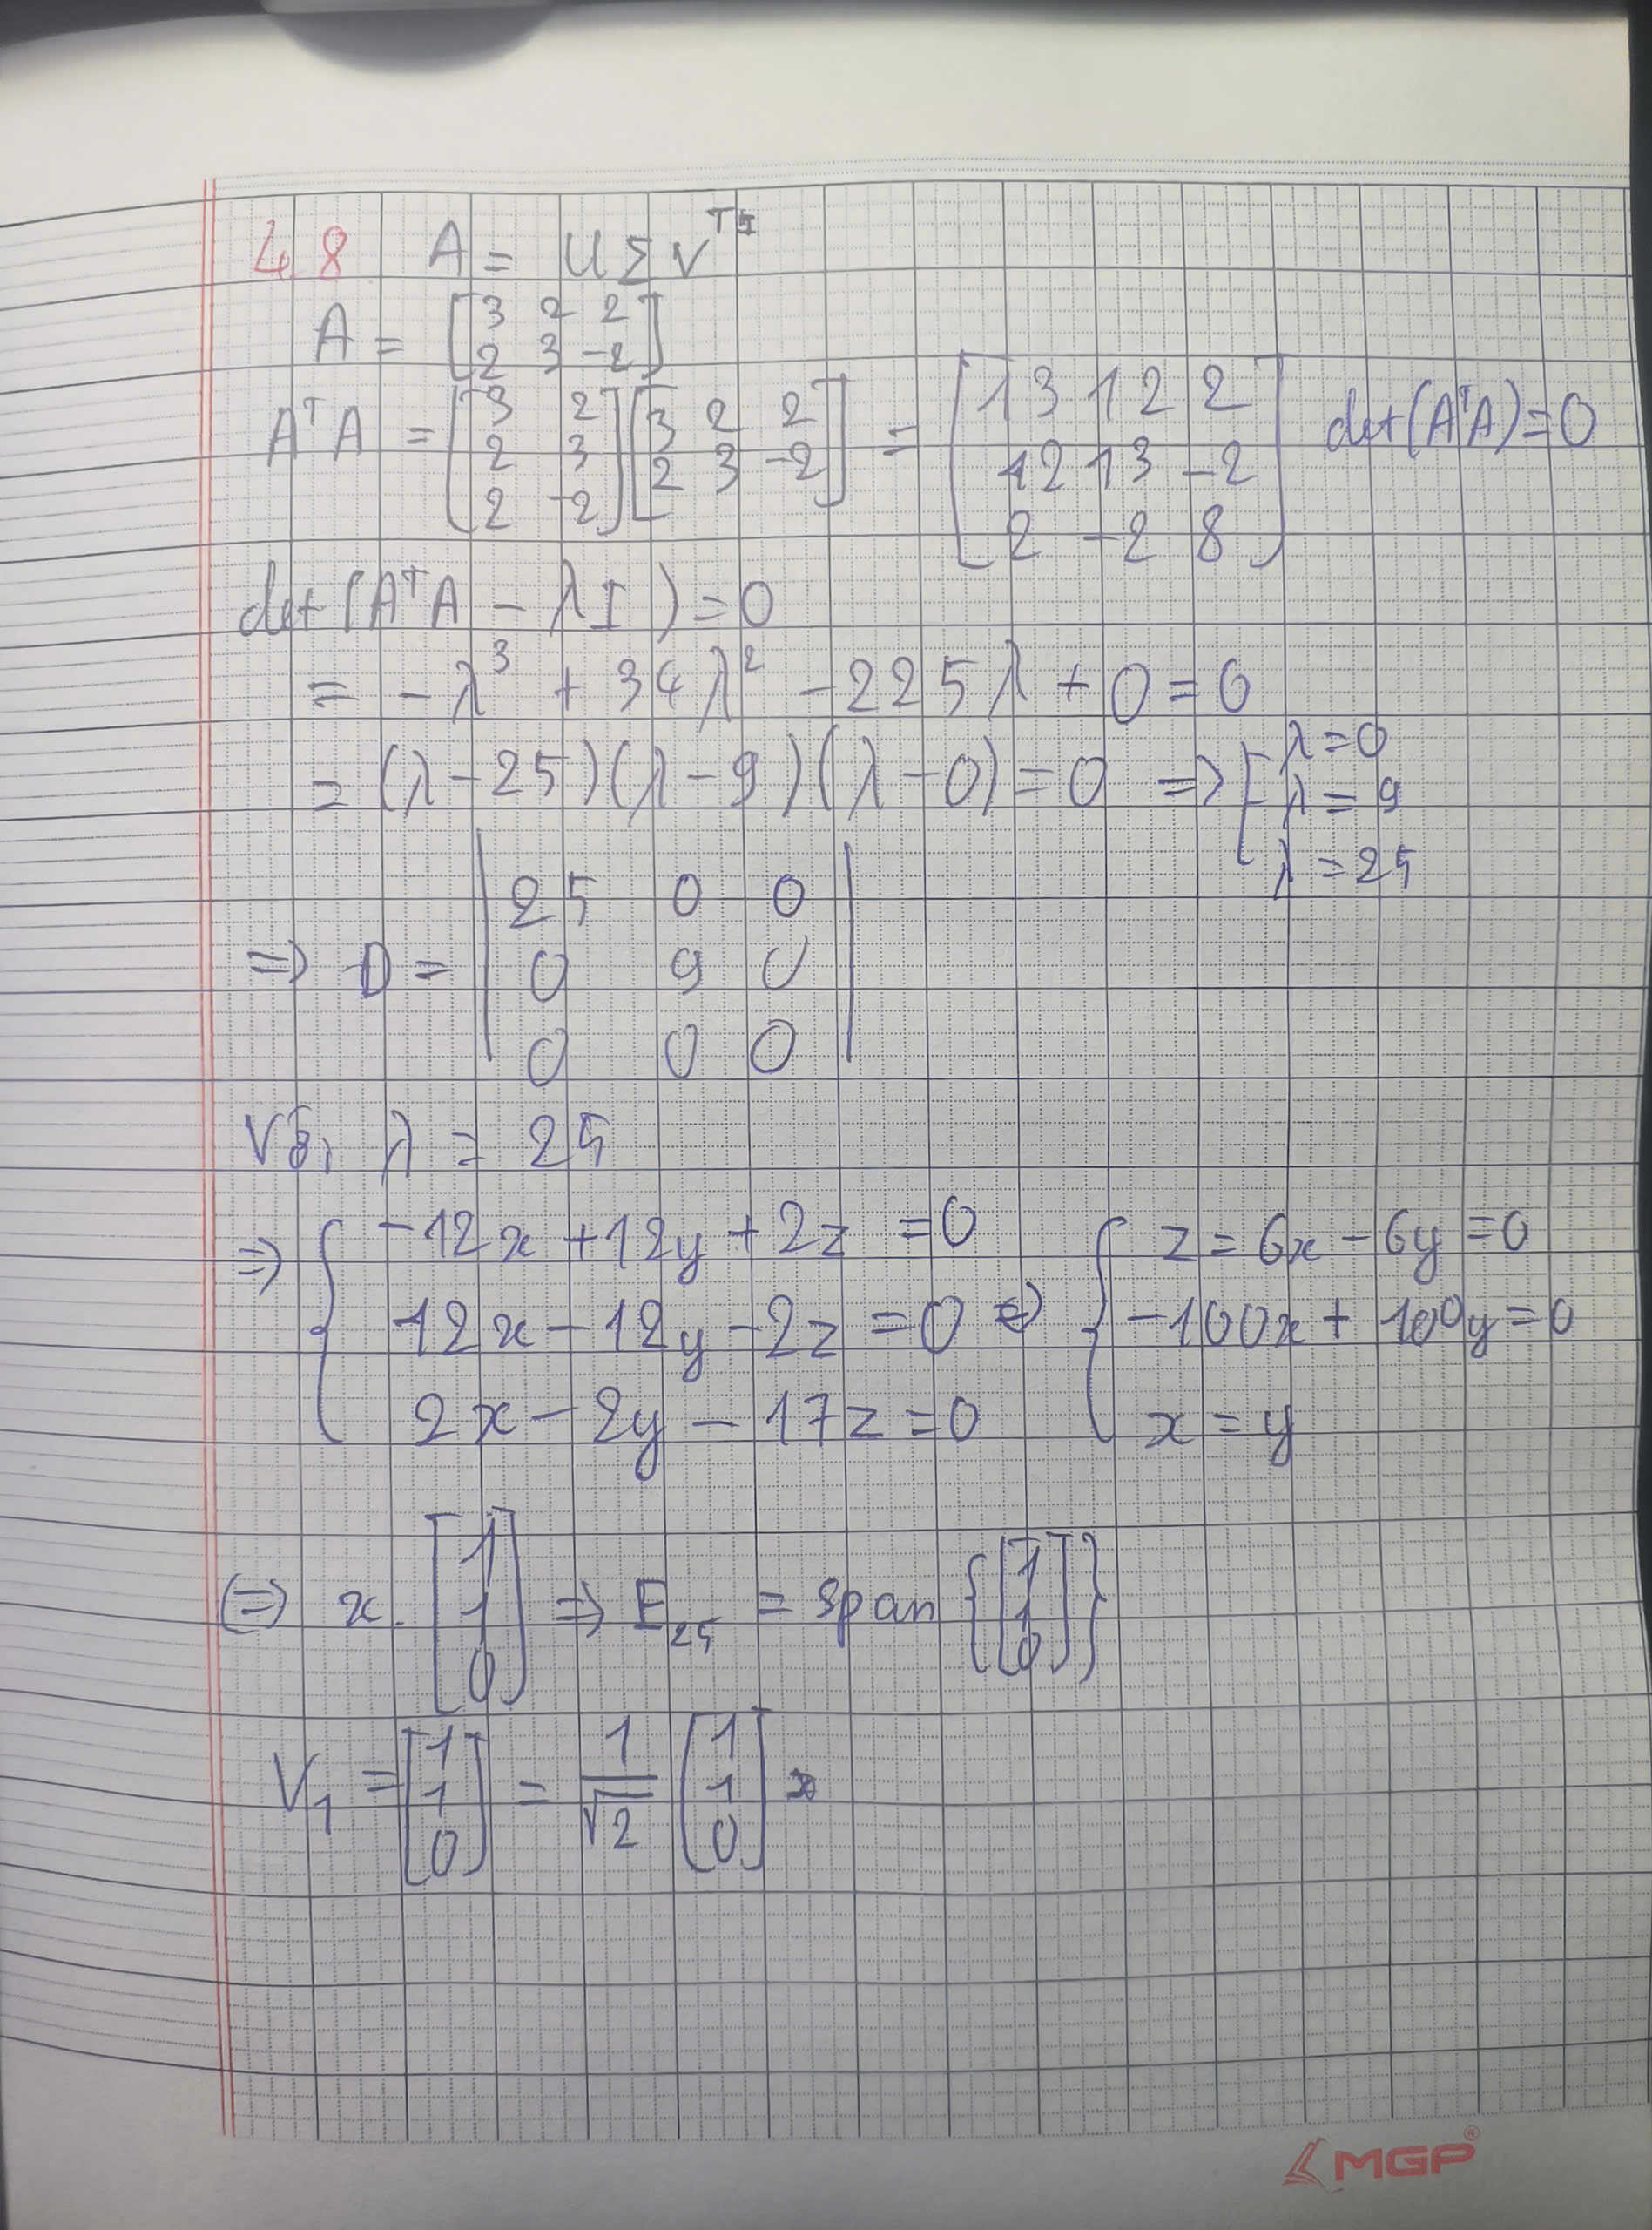 48 A = UΣV^T
A = [3 2 2; 2 3 -2]
A^T A = [3 2; 2 3; 2 -2] [3 2 2; 2 3 -2] = [13 12 2; 12 13 -2; 2 -2 8] det(A^T A) = 0
det(A^T A - λI) = 0
= -λ^3 + 34λ^2 - 225λ + 0 = 0
= (λ-25)(λ-9)(λ-0) = 0 => [λ=0; λ=9; λ=25
=> D = |25 0 0; 0 9 0; 0 0 0|
Với λ = 25
=> { -12x + 12y + 2z = 0; 12x - 12y - 2z = 0; 2x - 2y - 17z = 0 <=> { z = 6x - 6y = 0; -100x + 100y = 0; x = y
<=> x. [1; 1; 0] => E_25 = span {[1; 1; 0]}
V_1 = [1; 1; 0] = 1/√2 [1; 1; 0]
MGP®